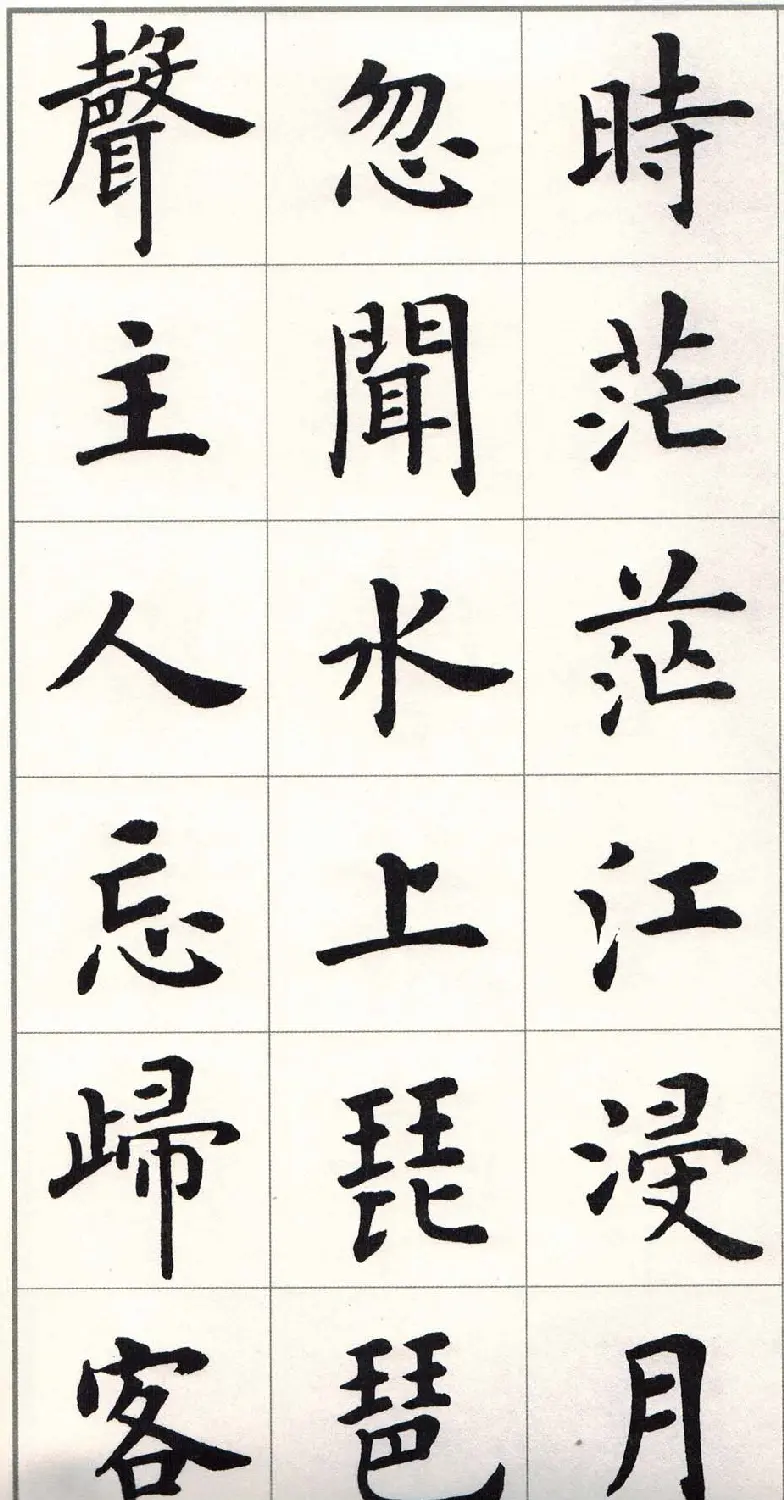 時茫茫江浸月
忽聞水上琵琶
聲主人忘歸客